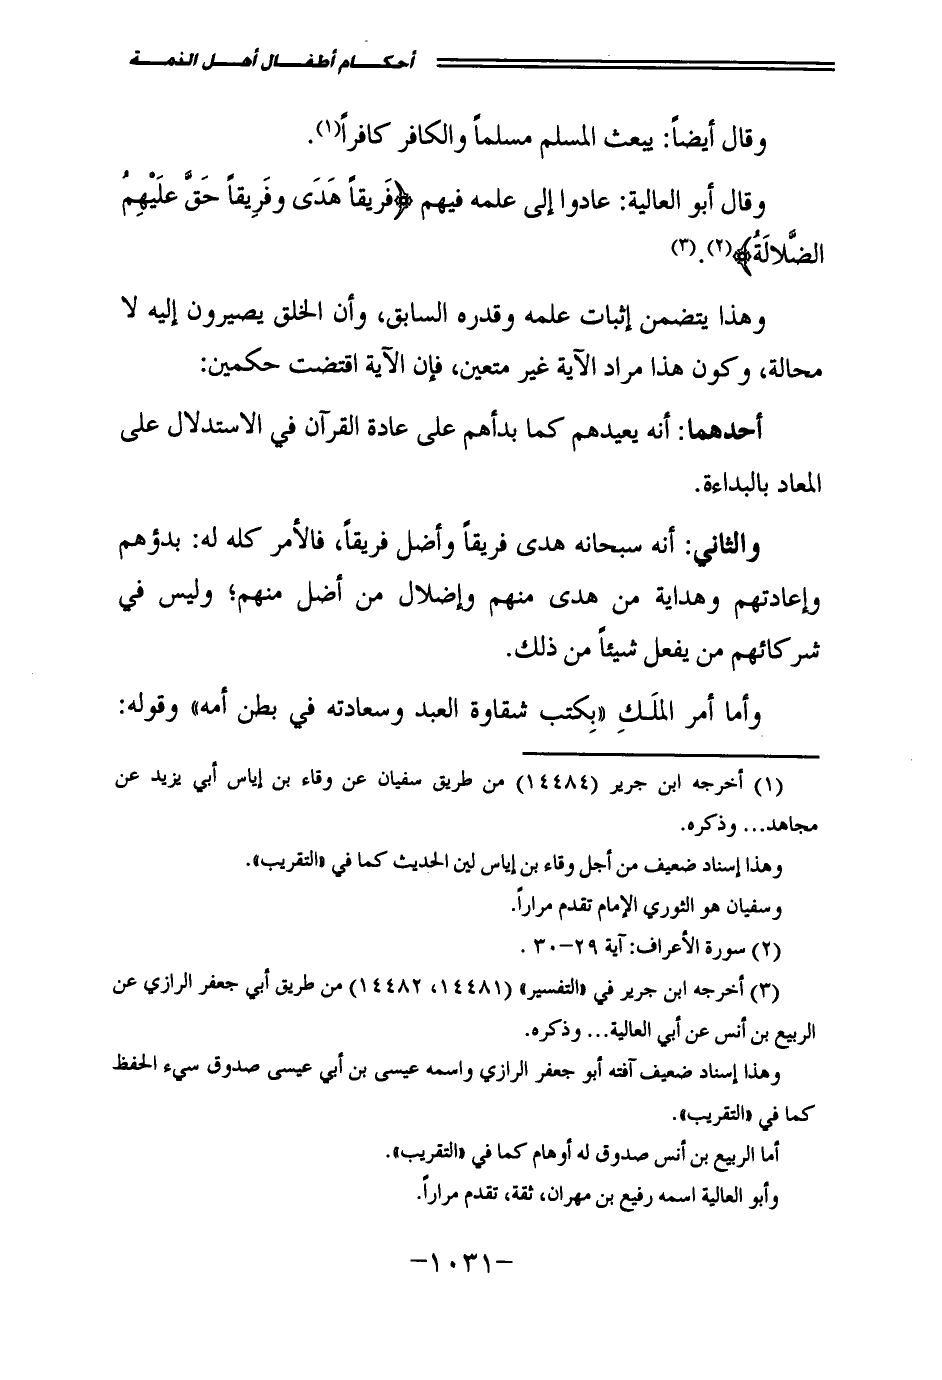 أحكام أطفال أهل الذمة
وقال أيضاً: يبعث المسلم مسلماً والكافر كافراً(١).
وقال أبو العالية: عادوا إلى علمه فيهم ﴿فَرِيقاً هَدَى وفَرِيقاً حَقَّ علَيْهِمُ
الضَّلالَةُ﴾(٢).(٣)
وهذا يتضمن إثبات علمه وقدره السابق، وأن الخلق يصيرون إليه لا
محالة، وكون هذا مراد الآية غير متعين، فإن الآية اقتضت حكمين:
أحدهما: أنه يعيدهم كما بدأهم على عادة القرآن في الاستدلال على
المعاد بالبداءة.
والثاني: أنه سبحانه هدى فريقاً وأضل فريقاً، فالأمر كله له: بدؤهم
وإعادتهم وهداية من هدى منهم وإضلال من أضل منهم؛ وليس في
شركائهم من يفعل شيئاً من ذلك.
وأما أمر الملَكِ «بِكتب شقاوة العبد وسعادته في بطن أمه» وقوله:
(١) أخرجه ابن جرير (١٤٤٨٤) من طريق سفيان عن وقاء بن إياس أبي يزيد عن
مجاهد... وذكره.
وهذا إسناد ضعيف من أجل وقاء بن إياس لين الحديث كما في «التقريب».
وسفيان هو الثوري الإمام تقدم مراراً.
(٢) سورة الأعراف: آية ٢٩-٣٠ .
(٣) أخرجه ابن جرير في «التفسير» (١٤٤٨١، ١٤٤٨٢) من طريق أبي جعفر الرازي عن
الربيع بن أنس عن أبي العالية... وذكره.
وهذا إسناد ضعيف آفته أبو جعفر الرازي واسمه عيسى بن أبي عيسى صدوق سيء الحفظ
كما في «التقريب».
أما الربيع بن أنس صدوق له أوهام كما في «التقريب».
وأبو العالية اسمه رفيع بن مهران، ثقة، تقدم مراراً.
-١٠٣١-